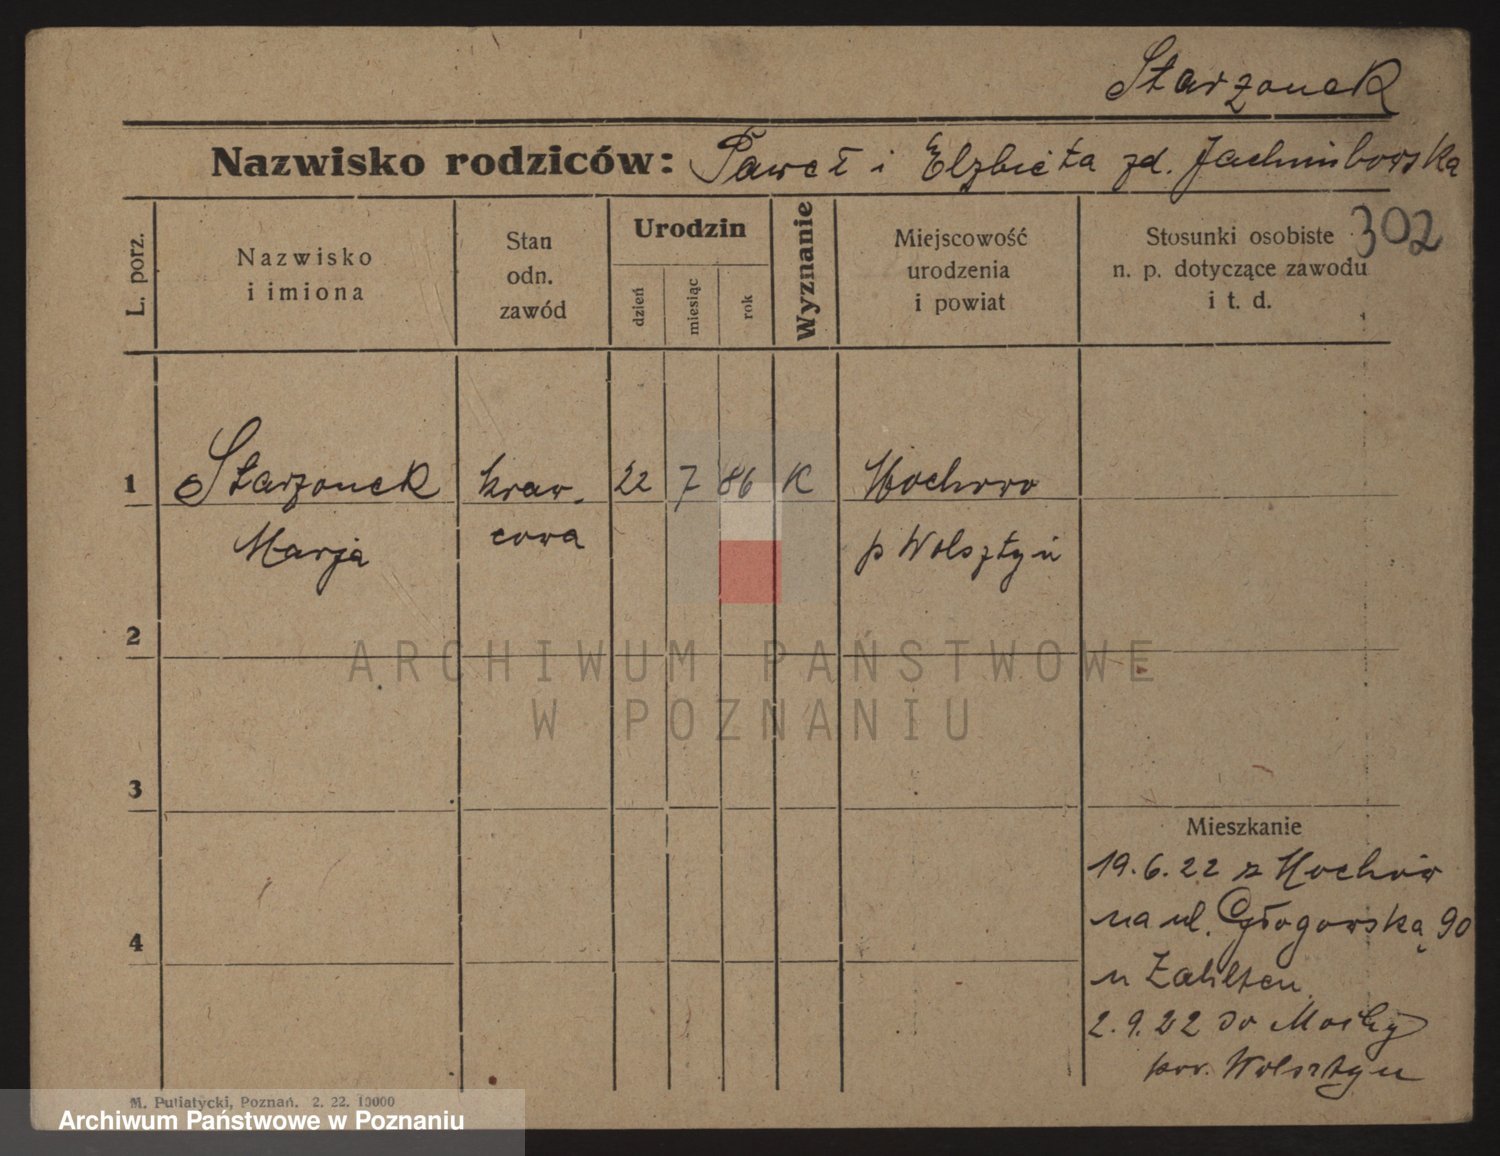 Starzonek
Nazwisko rodziców: Paweł i Elzbieta zd. Jachimborska
302
L. porz.
Nazwisko i imiona
Stan odn. zawód
Urodzin
dzień
miesiąc
rok
Wyznanie
Miejscowość urodzenia i powiat
Stosunki osobiste n. p. dotyczące zawodu i t. d.
1 Starzonek kraw- 22 7 86 K Mochowo
Marja cowa p Wolsztyn
2
3
4
ARCHIWUM PAŃSTWOWE
W POZNANIU
Mieszkanie
19.6.22 z
na ul. Głogowską 90
u
2.9.22 do
pow. Wolsztyn
M. Putiatycki, Poznań. 2. 22. 10000
Archiwum Państwowe w Poznaniu